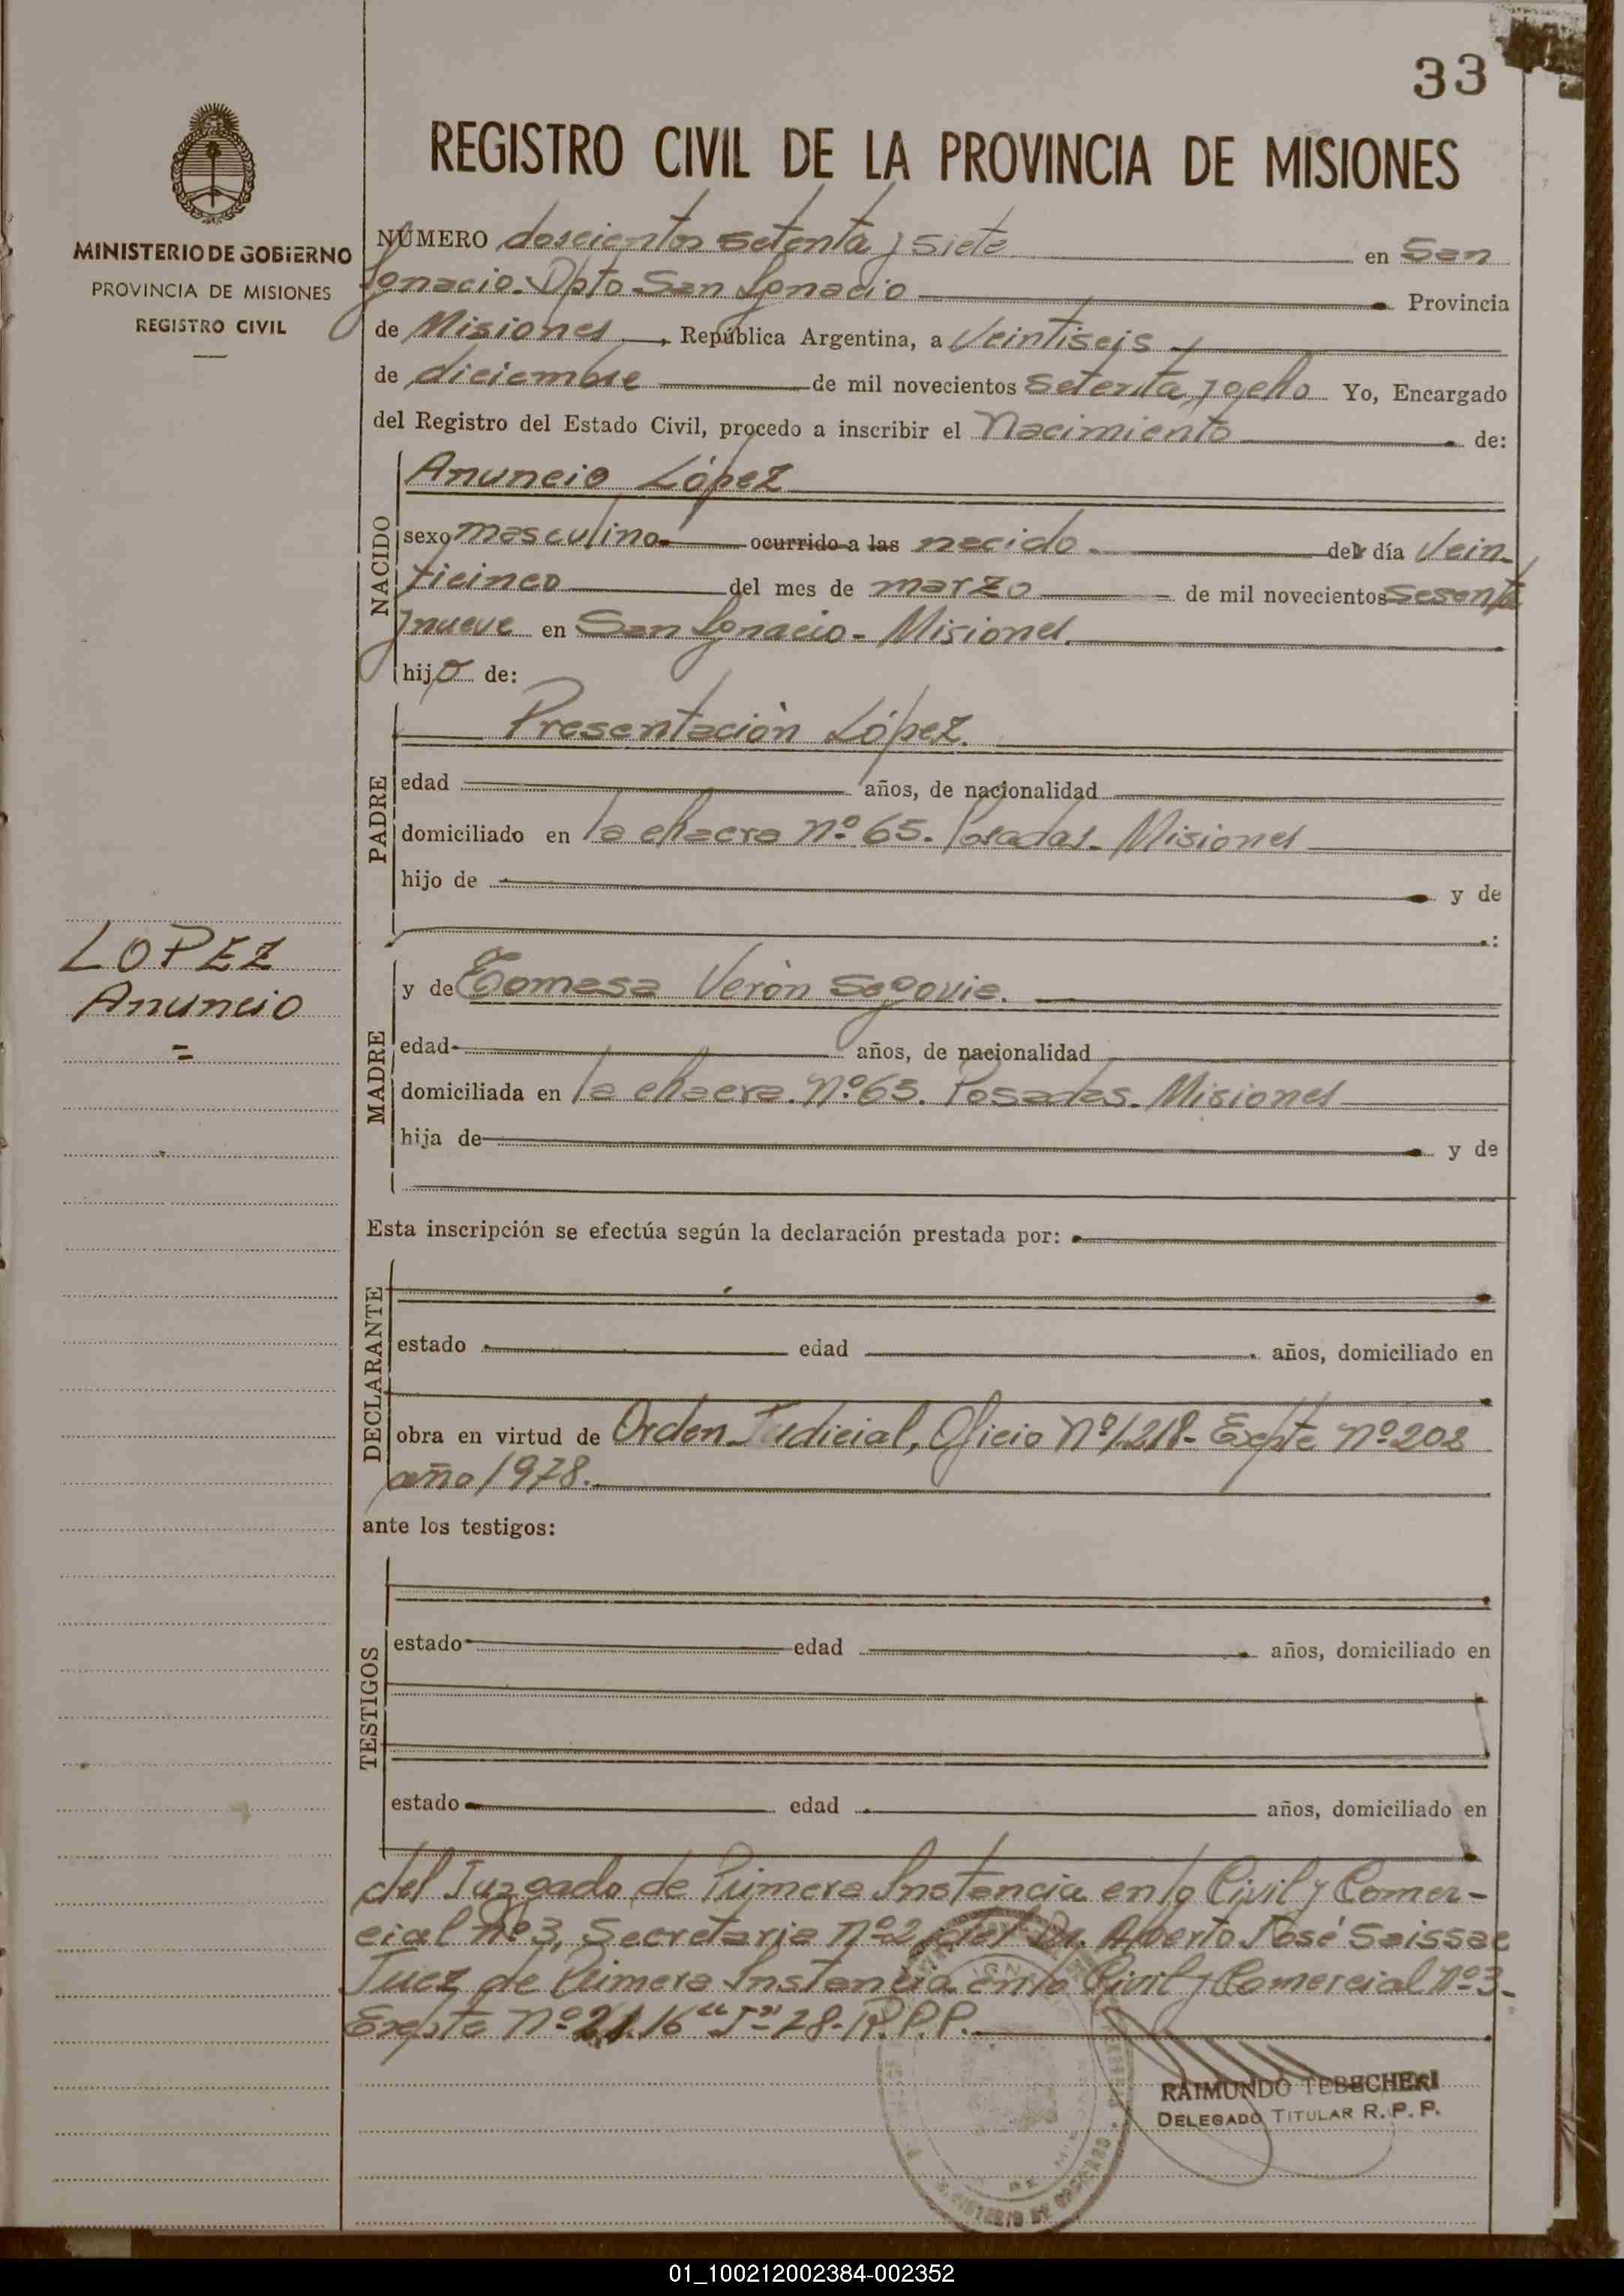 33
REGISTRO CIVIL DE LA PROVINCIA DE MISIONES
MINISTERIO DE GOBIERNO
PROVINCIA DE MISIONES
REGISTRO CIVIL
NÚMERO doscientos setenta y siete en San
Ignacio. Dpto San Ignacio Provincia
de Misiones, República Argentina, a Veintiseis
de diciembre de mil novecientos setenta y ocho Yo, Encargado
del Registro del Estado Civil, procedo a inscribir el Nacimiento de:
NACIDO
Anuncio López
sexo masculino ocurrido a las nacido. del día Vein
ticinco del mes de marzo de mil novecientos sesenta
y nueve en San Ignacio - Misiones.
hijo de:
PADRE
Presentación López.
edad años, de nacionalidad
domiciliado en la chacra nº 65. Posadas. Misiones
hijo de y de
:
LOPEZ
Anuncio
=
MADRE
y de Tomasa Verón Segovia.
edad años, de nacionalidad
domiciliada en la chacra. Nº 65. Posadas. Misiones
hija de y de
Esta inscripción se efectúa según la declaración prestada por:
DECLARANTE
estado edad años, domiciliado en
obra en virtud de Orden Judicial, Oficio Nº 1.218- Expte nº 208
año 1978.
ante los testigos:
TESTIGOS
estado edad años, domiciliado en
estado edad años, domiciliado en
del Juzgado de Primera Instancia en lo Civil y Comer-
cial Nº 3, Secretaria nº 2, del Dr. Alberto José Saissac
Juez de Primera Instancia en lo Civil y Comercial nº 3-
Expte nº 16 "J" 78- R.P.P.
RAIMUNDO TEBECHERI
DELEGADO TITULAR R. P. P.
01_100212002384-002352